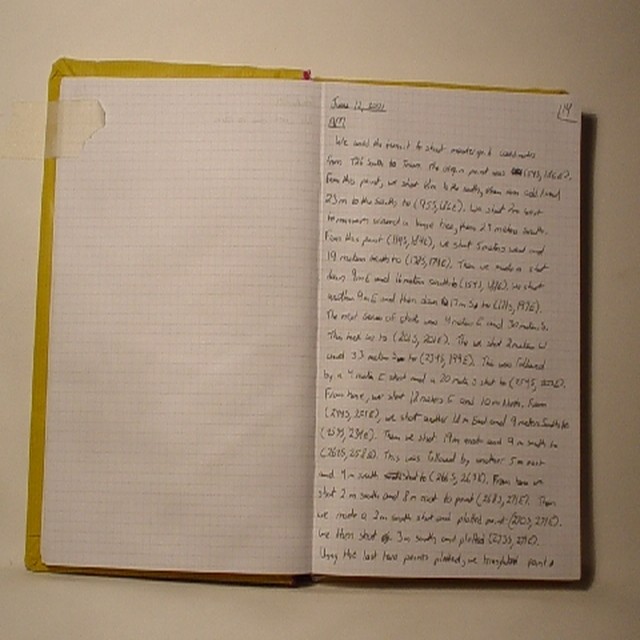 June 12, 2001
19
We used the transit to shoot coordinates
from T26 south to The origin point was (54S, 186E).
From this point, we shot to the south, then
25m to the south to (95S, 186E). We shot 2m west
to maneuver around a large tree, then 29 meters south.
From this point (119S, 184E), we shot 5 meters west and
19 meters south to (138S, 179E). Then we made a shot
9m E and 16 meters south to (154S, 188E). We shot
another 9m E and then 17m So to (171S, 197E).
The next series of shots was 4 meters E and 30 meters S.
This took us to (201S, 201E). The we shot 2 meters W
and 33 meters to (234S, 199E). This was followed
by a 4 meter E shot and a 20 meter S shot to (254S,
From here, we shot 18 meters E and 10 m North. From
(244S, 221E), we shot another 18m East and 9 meters South to
(253S, 239E). Then we shot 19m east and 9m south to
(262S, 258E). This was followed by another 5m east
and 4m south to (266S, 263E). From here we
shot 2m south and 8m east to point (268S, 271E). Then
we made a 2m south shot and plotted point (270S, 271E).
We then shot 3m south and plotted (273S, 271E).
Using the last two points plotted, we triangulated point